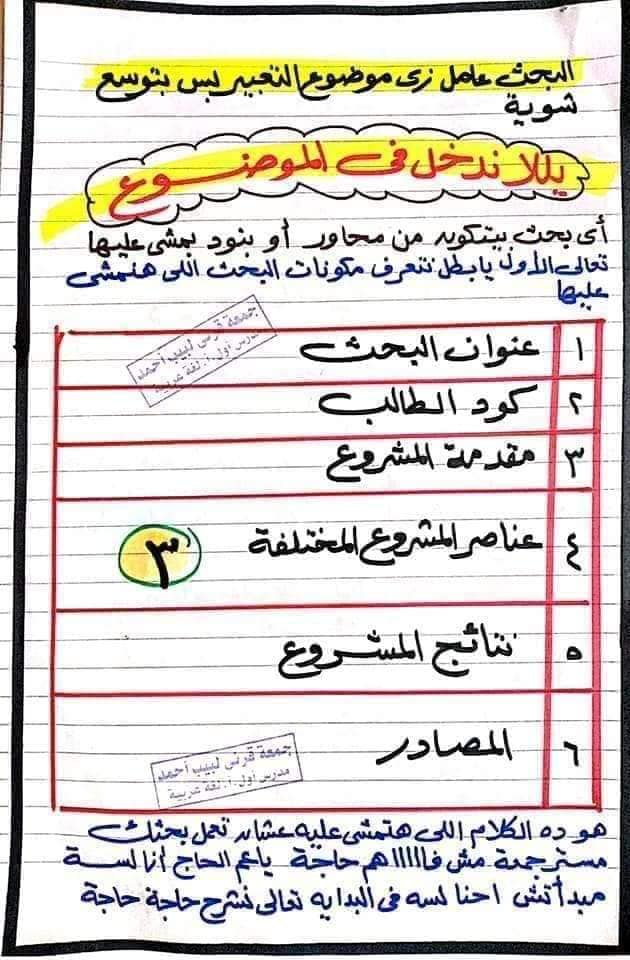 البحث عامل زى موضوع التعبير بس بتوسع
شوية
يللا ندخل فى الموضوع
أى بحث بيتكون من محاور أو بنود بمشى عليها
تعالى الأول يا بطل نتعرف مكونات البحث اللى هنمشى
عليها
جمعة قرنى لبيب أحمد
مدرس أول.أ. لغة عربية
١ عنوان البحث
٢ كود الطالب
٣ مقدمة المشروع
٤ عناصر المشروع المختلفة ٣
٥ نتائج المشروع
٦ المصادر
جمعة قرنى لبيب أحمد
مدرس أول.أ. لغة عربية
هو ده الكلام اللى هتمشى عليه عشان تعمل بحثك
مستر جمعة مش فاااااهم حاجة ياعم الحاج أنا لسة
مبدأتش احنا لسه فى البدايه تعالى نشرح حاجة حاجة